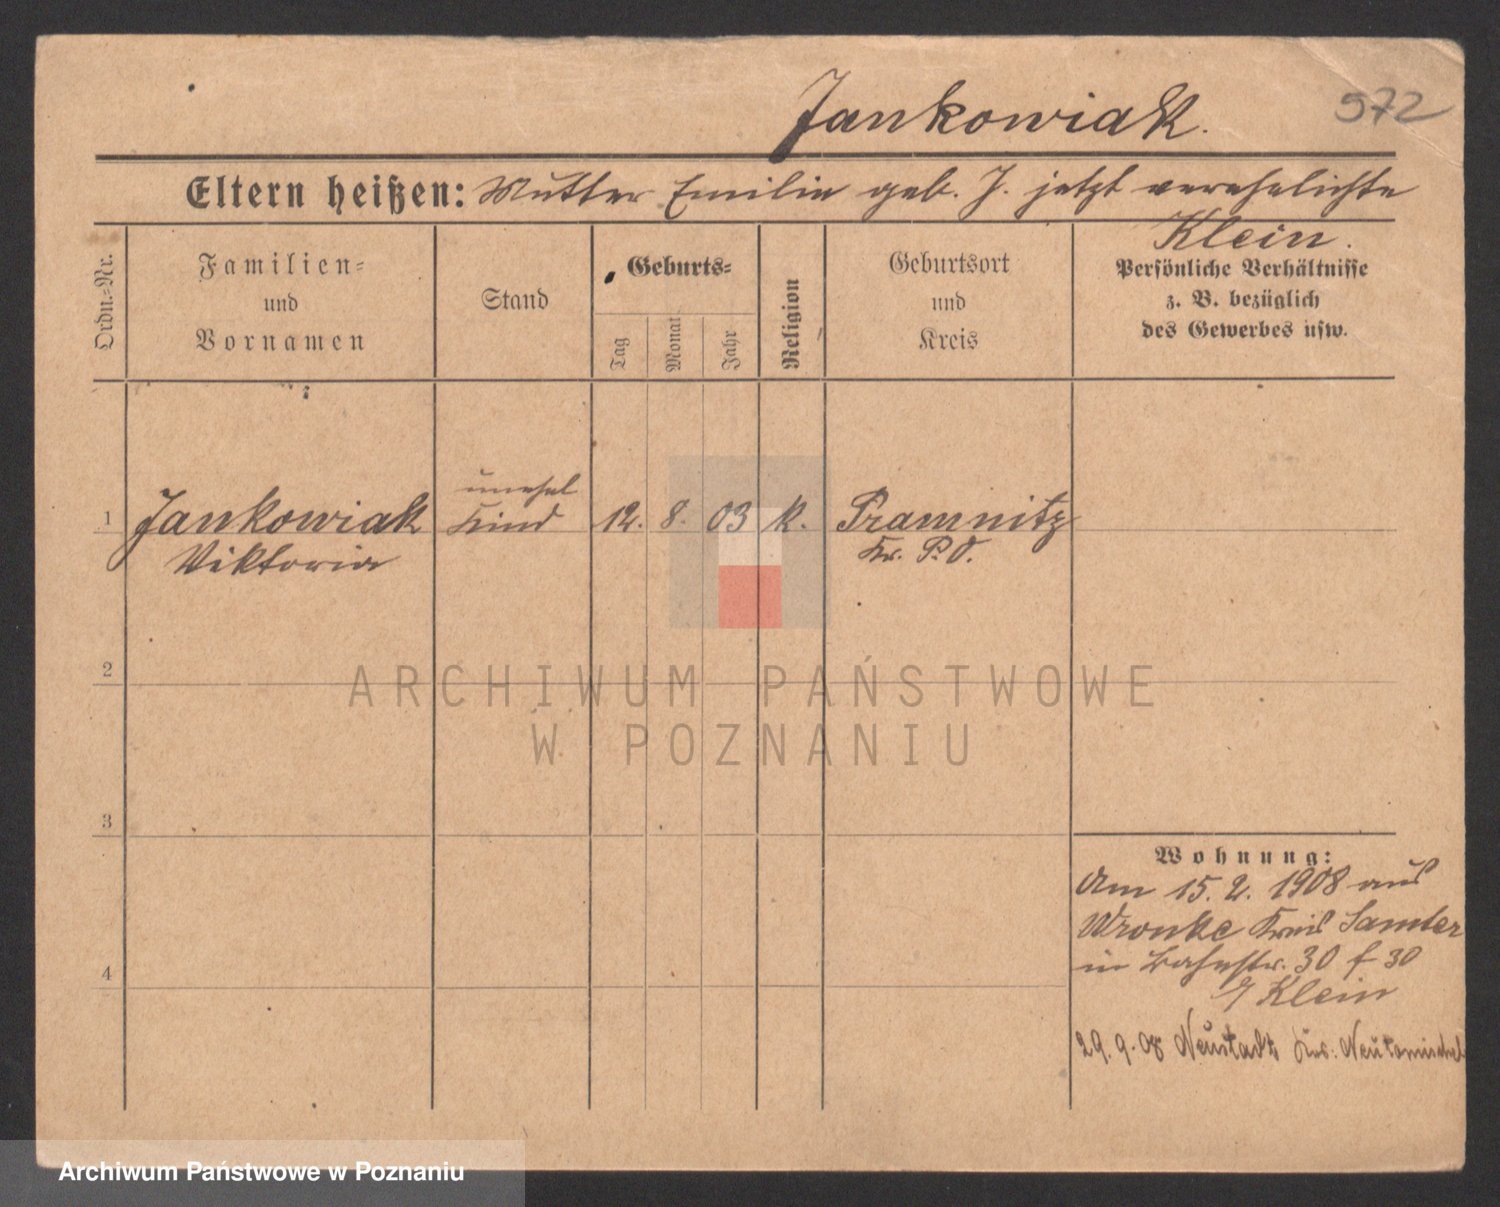 572
Jankowiak.
Eltern heißen: Mutter Emilie geb. J. jetzt verehelichte
Klein.
Ordn.=Nr.
Familien=
und
Vornamen
Stand
Geburts=
Tag
Monat
Jahr
Religion
Geburtsort
und
Kreis
Persönliche Verhältnisse
z. B. bezüglich
des Gewerbes usw.
1 Jankowiak unehel Kind 12. 8. 03 k. Pramnitz
Viktoria Kr. P. O.
2
3
4
Wohnung:
Am 15.2. 1908 aus
Wronke Kreis Samter
in Bahnstr. 30 f 30
Klein
29.9.08 Neustadt Krs. Neutomischel
ARCHIWUM PAŃSTWOWE
W POZNANIU
Archiwum Państwowe w Poznaniu